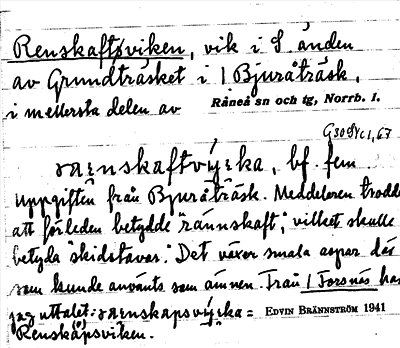 Renskaftsviken, vik i S änden
av Grundträsket i 1 Bjuråträsk,
i mellersta delen av Råneå sn och tg, Norrb. l.
bf. fem
Uppgiften från Bjuråträsk. Meddelaren trodde
att förleden betydde "rännskaft", vilket skulle
betyda "skidstavar". Det växer smala aspar där
som kunde använts som ämnen. Från 1 Forsnäs har
jag uttalet: =  EDVIN BRÄNNSTRÖM 1941
Renskapsviken.